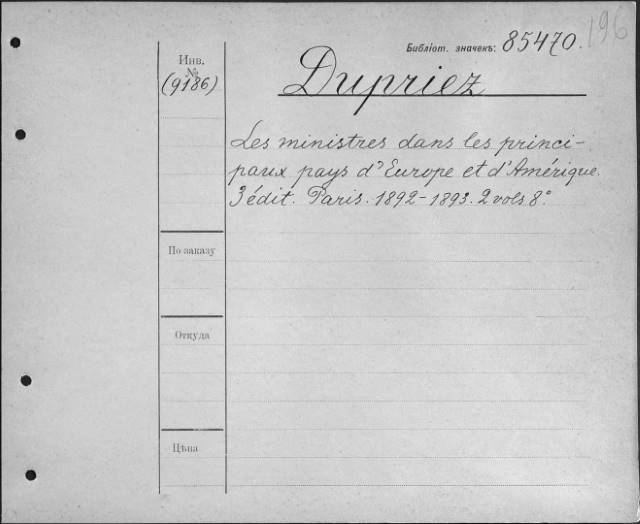 196
Библіот. значекъ: 85470.
Инв.
№
(9186)
Dupriez
Les ministres dans les princi-
paux pays d'Europe et d'Amérique.
3 édit. Paris. 1892-1893. 2 vols 8°
По заказу
Откуда
Цѣна